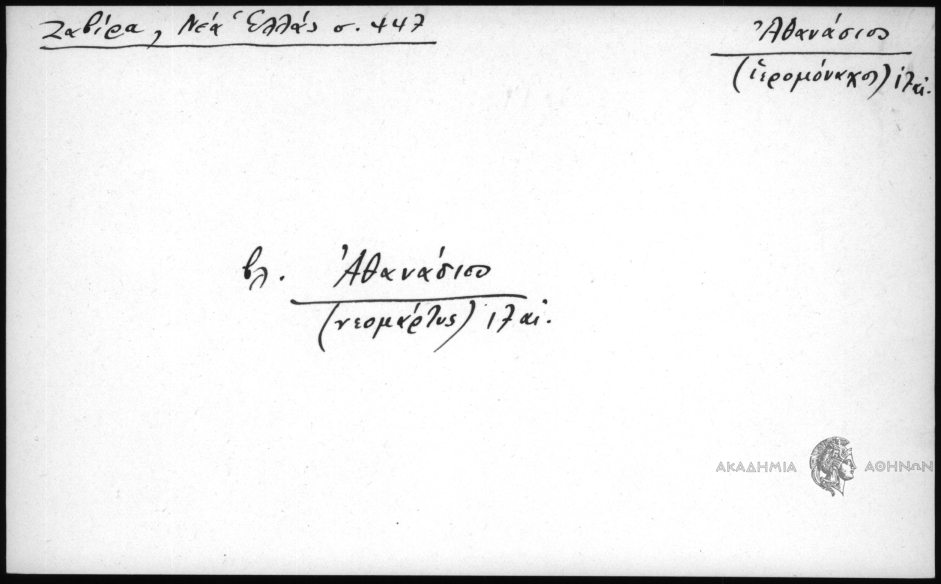 Ζαβίρα, Νέα Ἑλλάς σ. 447
Ἀθανάσιος
(ἱερομόναχος) 17 αἰ.
βλ. Ἀθανάσιος
(νεομάρτυς) 17 αἰ.
ΑΚΑΔΗΜΙΑ ΑΘΗΝΩΝ